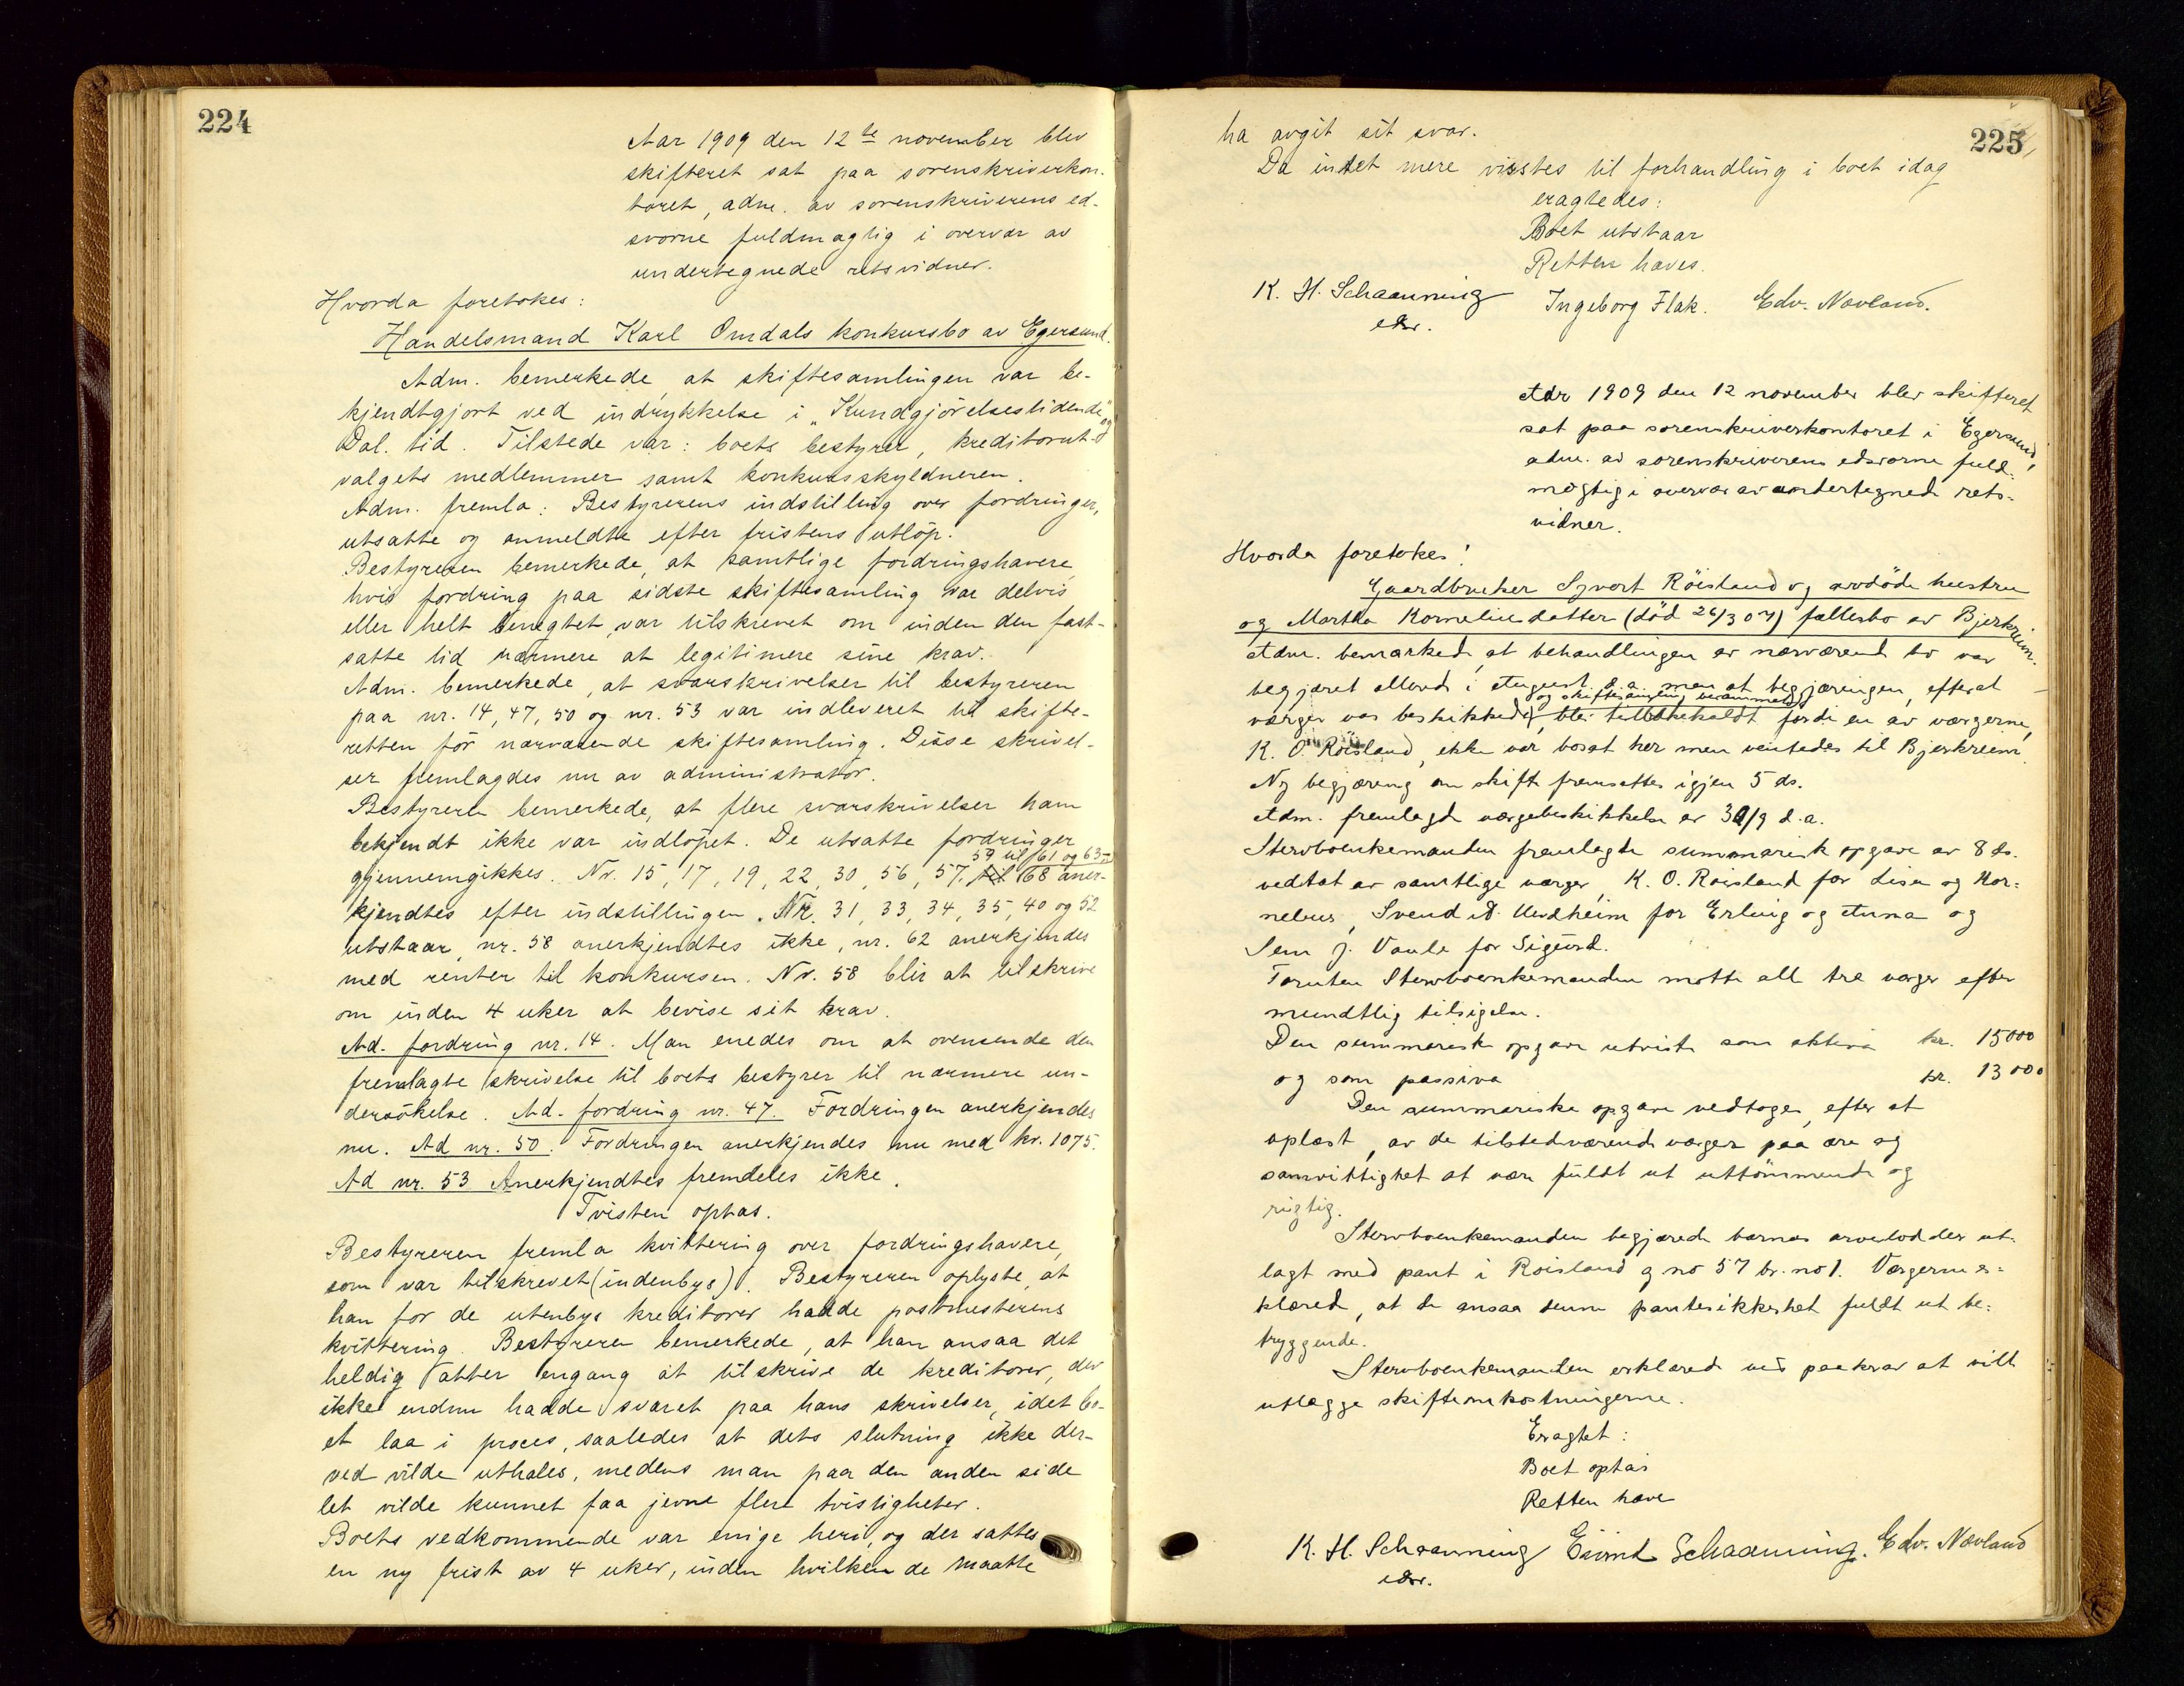 224
Aar 1909 den 12te november blev
skifteret sat paa sorenskriverkon-
toret, adm. av sorenskriverens ed-
svorne fuldmægtig i overvær av
undertegnede retsvidner.
Hvorda foretokes:
Handelsmand Karl Omdals konkursbo av Egersund.
Adm. bemerkede, at skiftesamlingen var be-
kjendtgjort ved indrykkelse i "Kundgjørelsestidende" og
Dal. tid. Tilstede var: boets bestyrer, kreditorut-
valgets medlemmer samt konkursskyldneren.
Adm. fremla: Bestyrerens indstilling over fordringer,
utsatte og anmeldte efter fristens utløp.
Bestyreren bemerkede, at samtlige fordringshavere,
hvis fordring paa sidste skiftesamling var delvis
eller helt benegtet, var tilskrevet om inden den fast-
satte tid nærmere at legitimere sine krav.
Adm. bemerkede, at svarskrivelser til bestyreren
paa nr. 14, 47, 50 og nr. 53 var indleveret til skifte-
retten før nærværende skiftesamling. Disse skrivel-
ser fremlagdes nu av administrator.
Bestyreren bemerkede, at flere svarskrivelser ham
bekjendt ikke var indløpet. De utsatte fordringer
59 til 61 og 63
gjennemgikkes. Nr. 15, 17, 19, 22, 30, 56, 57, til 68 aner-
kjendtes efter indstillingen. Nr. 31, 33, 34, 35, 40 og 52
utstaar, nr. 58 anerkjendtes ikke, nr. 62 anerkjendes
med renter til konkursen. Nr. 58 blir at tilskrive
om inden 4 uker at bevise sit krav.
Ad. fordring nr. 14. Man enedes om at oversende den
fremlagte skrivelse til boets bestyrer til nærmere un-
dersøkelse. Ad. fordring nr. 47. Fordringen anerkjendes
nu. Ad nr. 50. Fordringen anerkjendes nu med kr. 1075.
Ad nr. 53 Anerkjendtes fremdeles ikke.
Tvisten optas.
Bestyreren fremla kvittering over fordringshavere,
som var tilskrevet (indenbys). Bestyreren oplyste, at
han for de utenbys kreditorer hadde postmesterens
kvittering. Bestyreren bemerkede, at han ansaa det
heldig atter engang at tilskrive de kreditorer, der
ikke endnu hadde svaret paa hans skrivelser, idet bo-
et laa i proces, saaledes at dets slutning ikke der-
ved vilde uthales, medens man paa den anden side
let vilde kunnet faa jevne flere tvistigheter.
Boets vedkommende var enige heri, og der sattes
en ny frist av 4 uker, inden hvilken de maatte
225
ha avgit sit svar.
Da intet mere visstes til forhandling i boet idag
eragtedes:
Boet utstaar
Retten hæves.
K. H. Schaanning Ingeborg Flak. Edv. Nævland.
edsv.
Aar 1909 den 12 november blev skifteret
sat paa sorenskriverkontoret i Egersund,
adm. av sorenskriverens edsvorne fuld-
mægtig i overvær av undertegnede rets-
vidner.
Hvorda foretokes:
Gaardbruker Sjvert Röisland og avdöde hustru
og Martha Korneliusdatter (död 26/3 07) fællesbo av Bjerkreim.
Adm. bemerkede, at behandlingen av nærværende bo var
begjæret allerede i august d.a. men at begjæringen, efterat
og skiftesamling berammet
værger var beskikkede, blev tilbakekaldt fordi en av værgerne,
K. O. Röisland, ikke var bosat her men ventedes til Bjerkreim.
Ny begjæring om skifte fremsattes igjen 5 ds.
Adm. fremlagde værgebeskikkelse av 30/9 d.a.
Stervboenkemanden fremlagte summarisk opgave av 8 ds.
vedtat av samtlige værger, K. O. Röisland for Lisa og Kor-
nelius, Svend Undheim for Erling og Anna og
Sem J. Vaule for Sigurd.
Foruten Stervboenkemanden mötte alle tre værger efter
mundtlig tilsigelse.
Den summariske opgave utviste som aktiva kr. 15000
og som passiva kr. 13000
Den summariske opgave vedtoges, efter at
oplæst, av de tilstedeværende værger paa ære og
samvittighet at være fuldt ut uttömmende og
rigtig.
Stervboenkemanden begjærede barnas arvelodder ut-
lagt med pant i Röisland g no 57 br. no 1. Værgerne er-
klærede, at de ansaa denne pantesikkerhet fuldt ut be-
tryggende.
Stervboenkemanden erklærede ved paakrav at ville
utlægge skifteomkostningerne.
Eragtet:
Boet optas
Retten hæve
K. H. Schaanning Eivind Schaanning. Edv. Nævland
edsv.